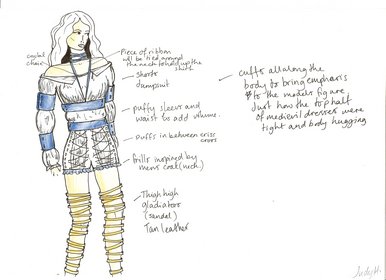 Piece of ribbon
will be tied around
the neck to hold up the
shirt
chain
shorts
Jumpsuit
puffy sleevs and
waist to add volume.
puffs in between criss
cross
frills inspired by
mens coat (neck.)
Thigh high
gladiator
(sandel)
Tan leather
cuffs all along the
body to bring emphasis
to the models figure.
Just how the top half
of medievil dresses were
tight and body hugging
Judy H.